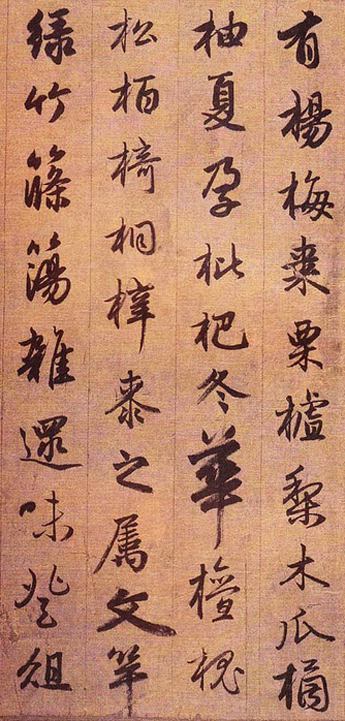 有楊梅棗栗樝梨木瓜橘
柚夏孕枇杷冬華檀槐
松柏椅桐梓桼之属文竿
緑竹篠簜雜遝味登俎